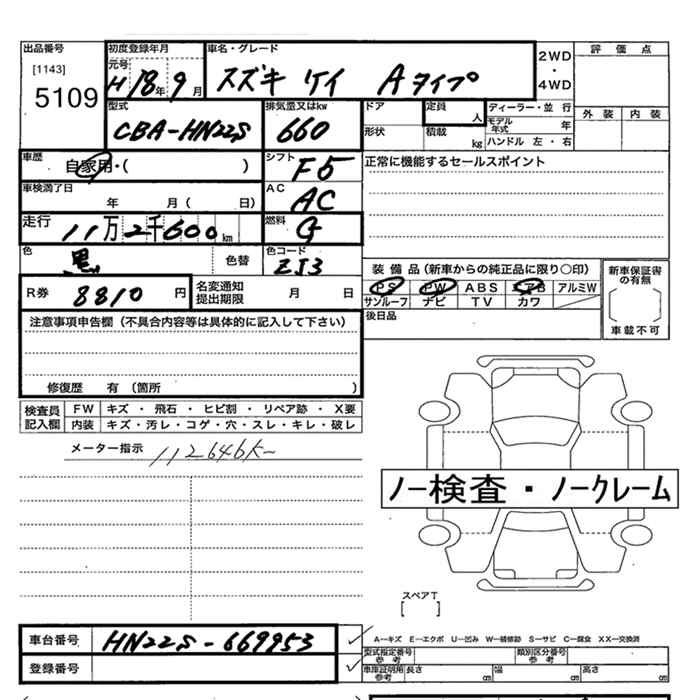 出品番号
[1143]
5109
初度登録年月
元号
H 18年 9月
車名・グレード
スズキ ケイ Aタイプ
2WD
・
4WD
評価点
外装 内装
型式
CBA-HN22S
排気量又はkw
660
ドア
形状
定員
人
積載
kg
ディーラー・並行
モデル年式 年
ハンドル 左・右
車歴
自家用・( )
シフト
F5
正常に機能するセールスポイント
車検満了日
年 月( 日)
AC
AC
走行
11万2千600km
燃料
G
色
黒
色替
色コード
ZJ3
R券 8810 円
名変通知
提出期限
月 日
装備品(新車からの純正品に限り○印)
PS PW ABS エアB アルミW
サンルーフ ナビ TV カワ
新車保証書
の有無
車載不可
後日品
注意事項申告欄(不具合内容等は具体的に記入して下さい)
修復歴 有(箇所 )
検査員
記入欄
FW キズ・飛石・ヒビ割・リペア跡・X要
内装 キズ・汚レ・コゲ・穴・スレ・キレ・破レ
メーター指示 112646K
ノー検査・ノークレーム
スペアT
[ ]
車台番号 HN22S-669953
A−キズ E−エクボ U−凹み W−補修跡 S−サビ C−腐食 XX−交換済
型式指定番号
参考
類別区分番号
参考
登録番号
車庫証明用
参考
長さ cm 幅 cm 高さ cm